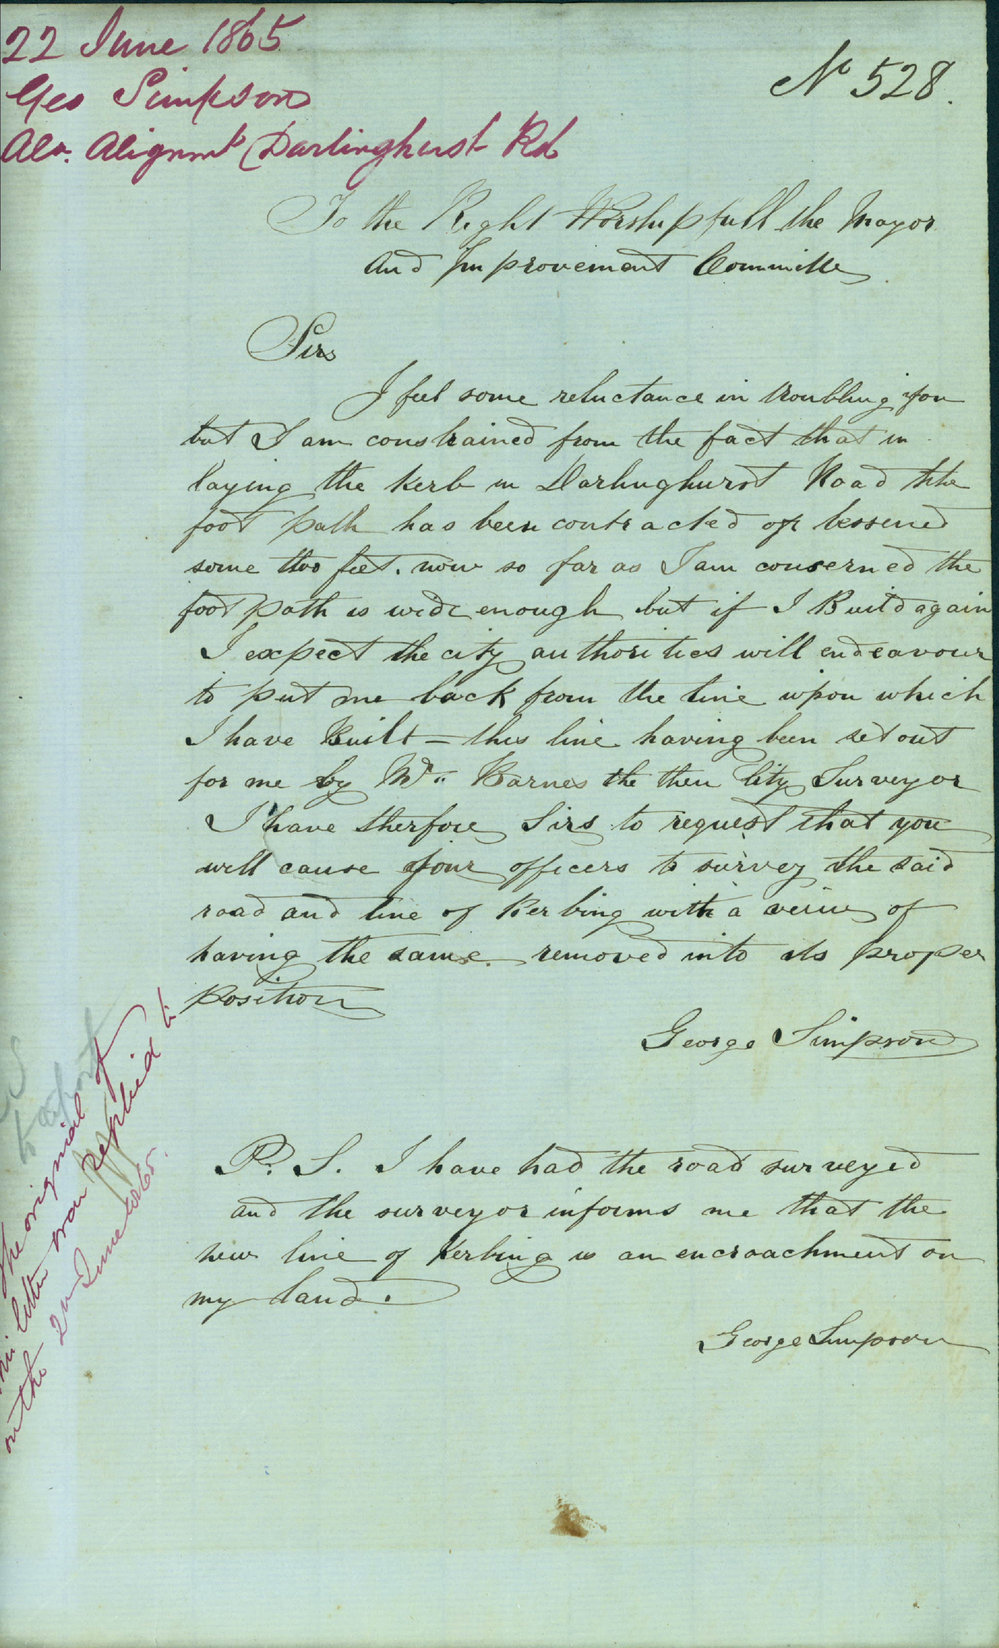 22 June 1865
Geo Simpson
Alignmt Darlinghurst Rd
No 528.
To the Right Worshipfull the Mayor
and Improvement Committe
Sirs
I feel some reluctance in troubling you
but I am constrained from the fact that in
laying the Kerb in Darlinghurst Road the
foot path has been contracted or lessened
some two feet. now so far as I am conserned the
foot path is wide enough but if I Build again
I expect the city authorities will endeavour
to put me back from the line upon which
I have Built – this line having been set out
for me by Mr. Barnes the then City Surveyor
I have therfore Sirs to request that you
will cause your officers to survey the said
road and line of Kerbing with a veiw of
having the same removed into its proper
position
George Simpson
P. S. I have had the road surveyed
and the surveyor informs me that the
new line of Kerbing is an encroachment on
my land.
George Simpson
The original of
this letter was replied to
on the 22 June 1865.